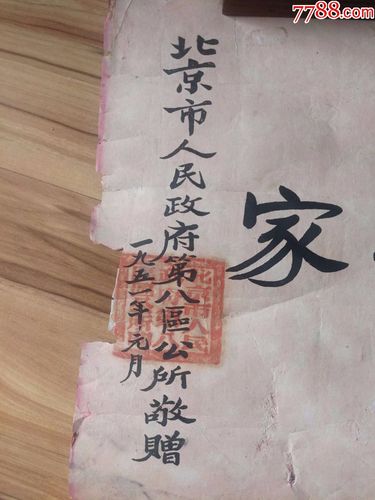 7788.com
家
北京市人民政府第八區公所敬贈
一九五一年元月